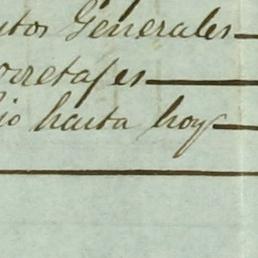 tos Generales
rretajes
io hasta hoy